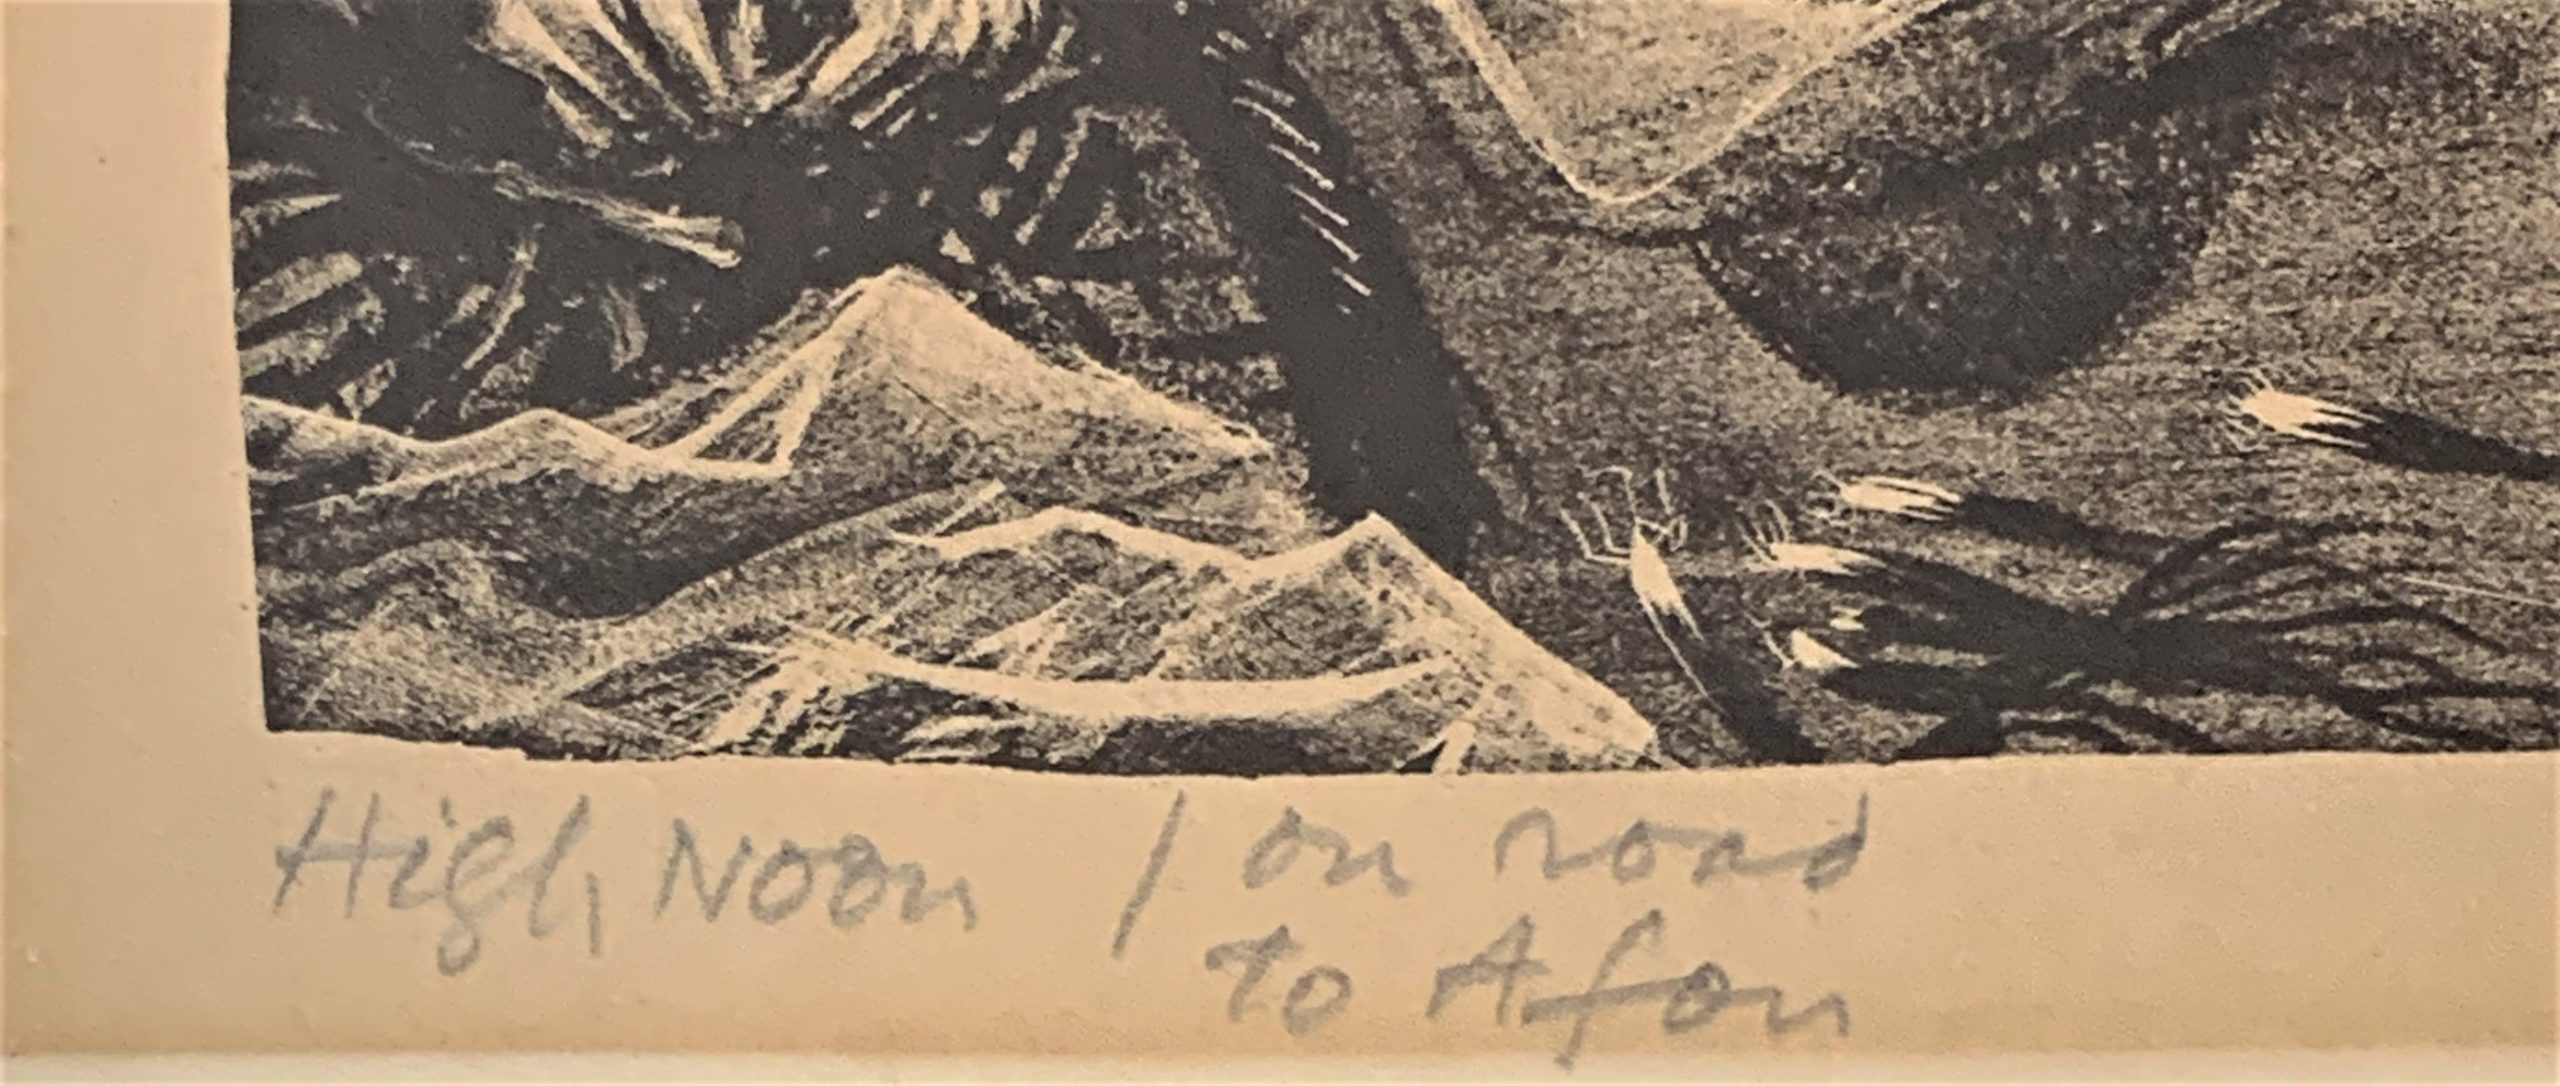 High Noon / on road
to Afon